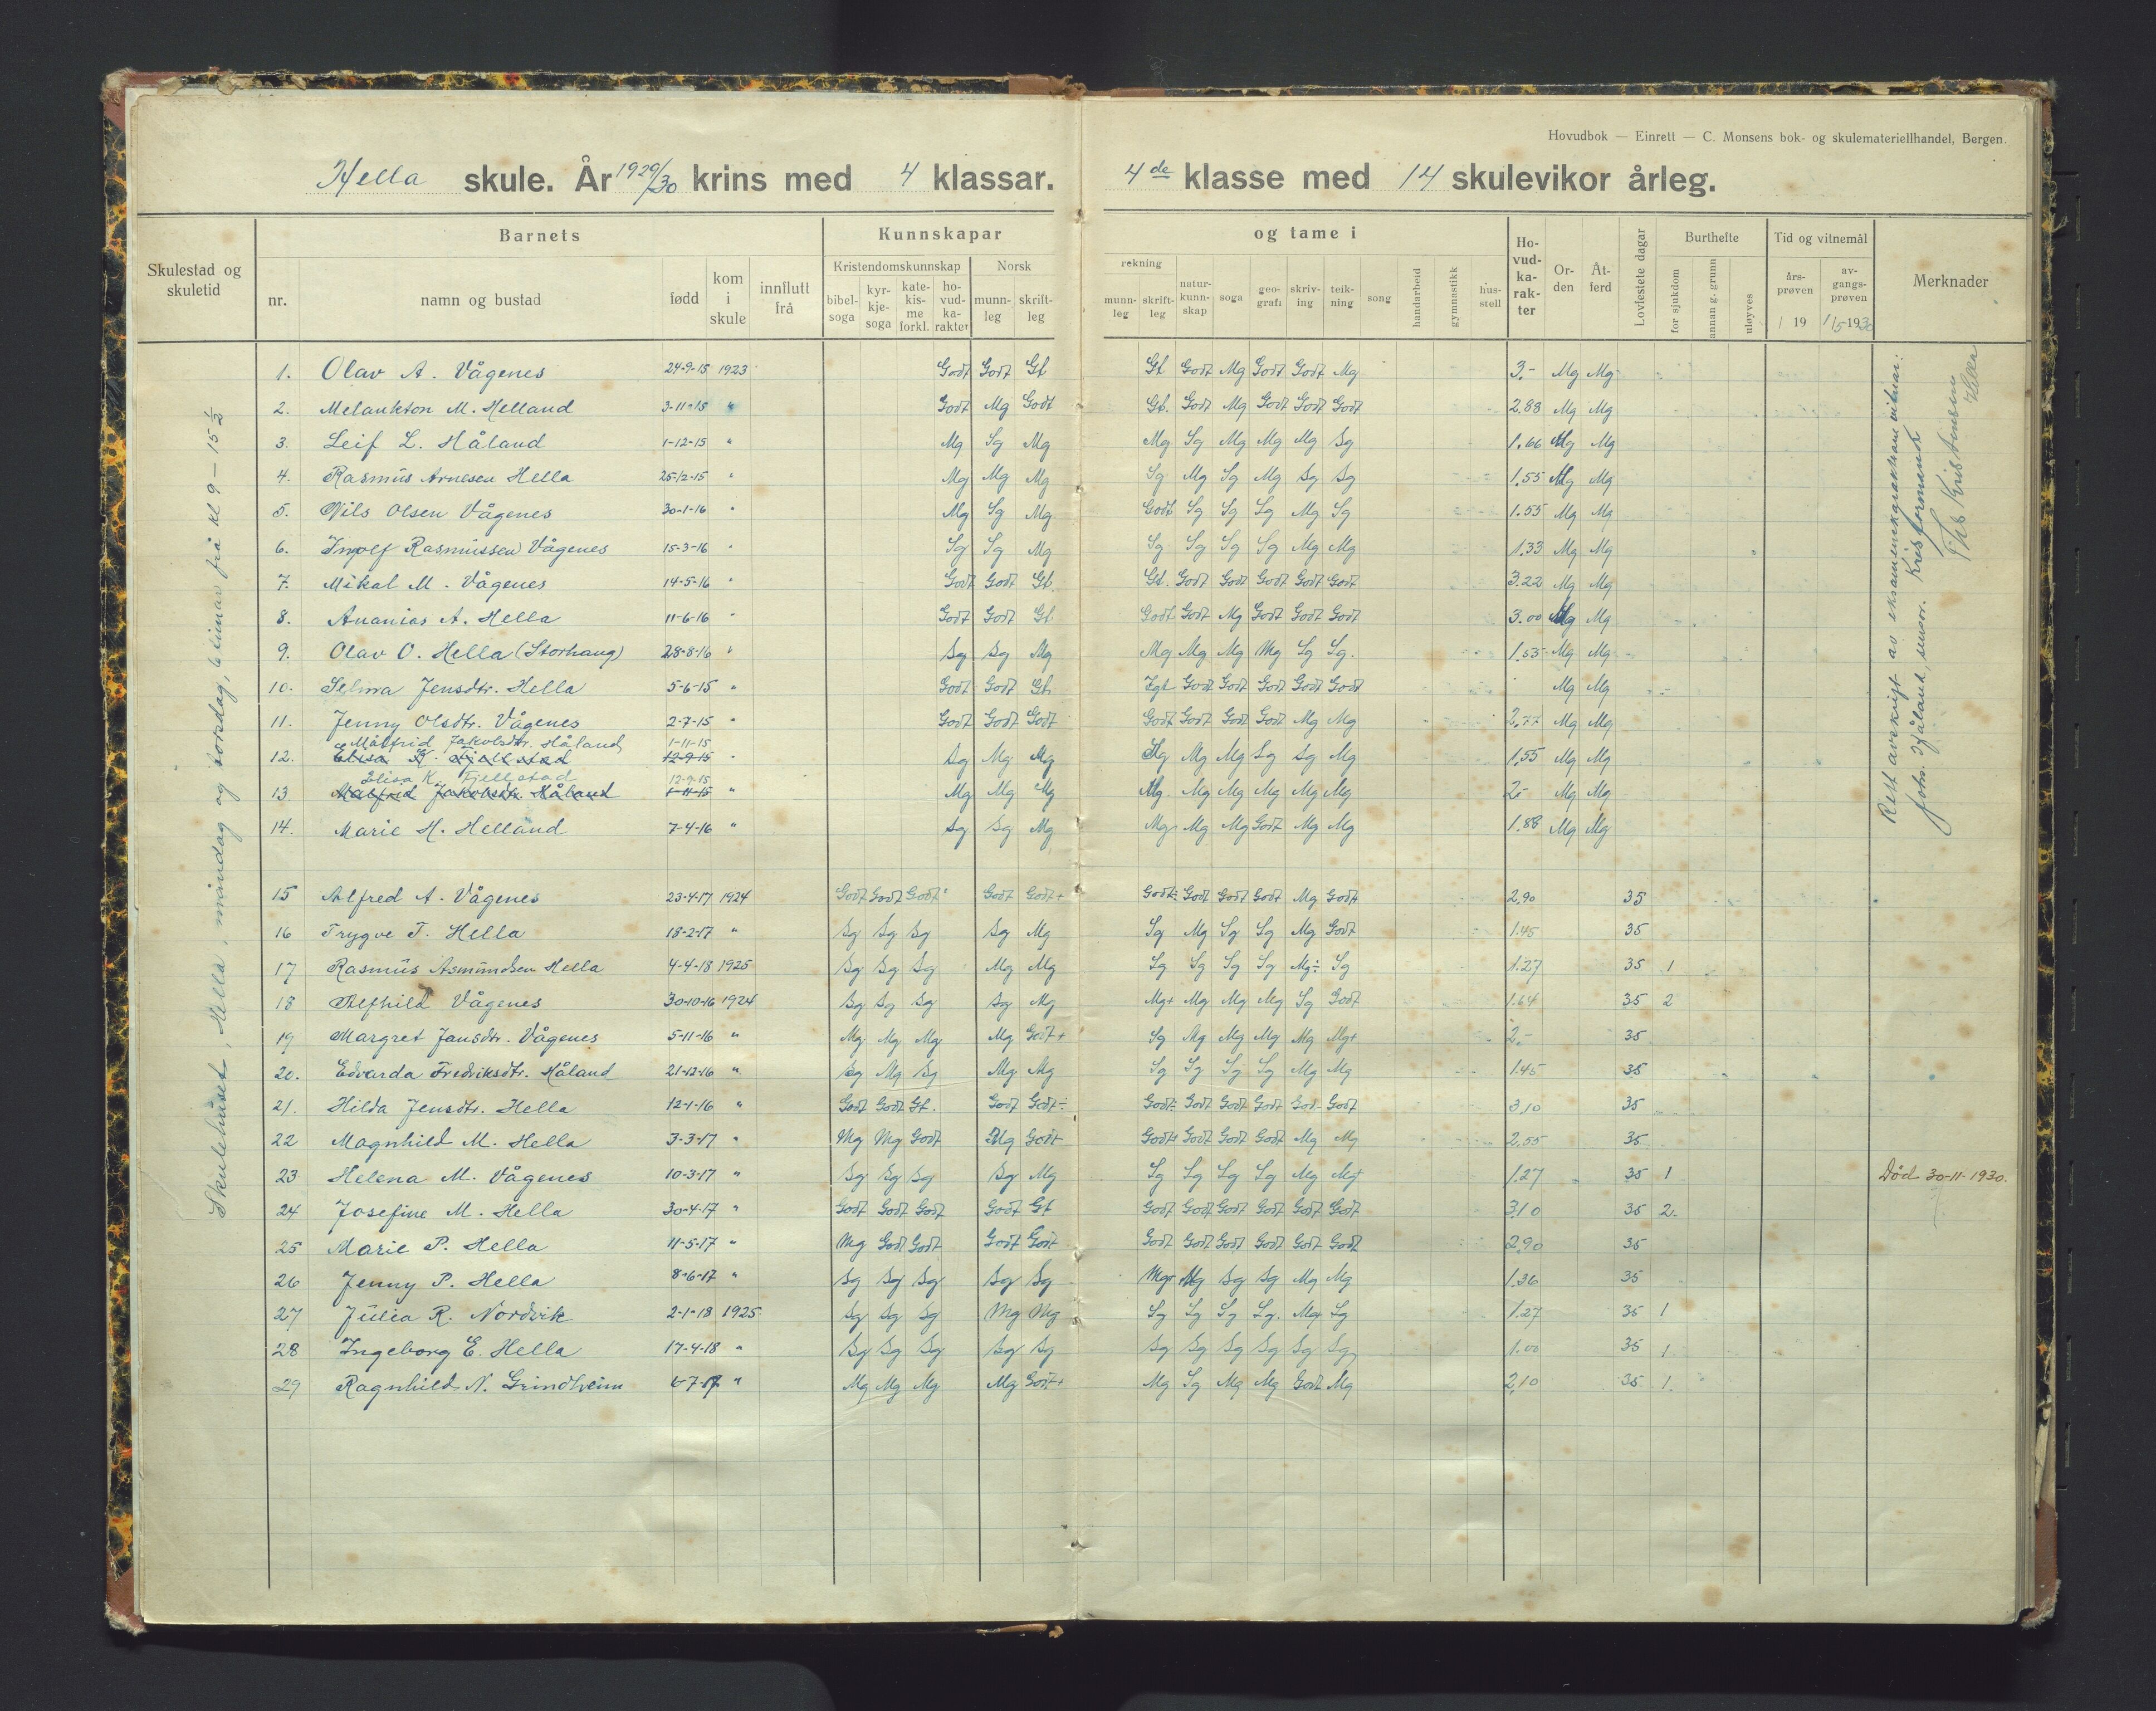 Hovudbok — Einrett — C. Monsens bok- og skulemateriellhandel, Bergen.
Hella skule. År 1929/30 krins med 4 klassar. 4de klasse med 14 skulevikor årleg.
Skulestad og skuletid
Barnets
nr. namn og bustad født kom i skule innflutt frå
Kunnskapar og tame i
Kristendomskunnskap Norsk rekning
bibelsoga kyrkjesoga katekisme forkl. hovudkarakter munnleg skriftleg munnleg skriftleg naturkunnskap soga geografi skriving teikning song handarbeid gymnastikk husstell
Hovudkarakter Orden Åtferd Lovfestete dagar
Burthefte
for sjukdom annan g. grunn uløyves
Tid og vitnemål
årsprøven avgangsprøven
1 19 1/5 1930
Merknader
Skulehuset, Hella, måndag og torsdag, 6 timar frå kl 9 - 15 1/2
1. Olav A. Vågenes 24-9-15 1923 Godt Godt Gt Gt Godt Mg Godt Godt Mg 3.- Mg Mg
2. Melankton M. Helland 3-11-15 " Godt Mg Godt Gt. Godt Mg Godt Godt Godt 2.88 Mg Mg
3. Leif L. Håland 1-12-15 " Mg Sg Mg Mg Sg Mg Mg Mg Sg 1.66 Mg Mg
4. Rasmus Arnesen Hella 25-12-15 " Mg Mg Mg Sg Mg Sg Mg Sg Sg 1.55 Mg Mg
5. Nils Olsen Vågenes 30-1-16 " Mg Sg Mg Godt Sg Sg Sg Mg Sg 1.55 Mg Mg
6. Ingolf Rasmussen Vågenes 15-3-16 " Sg Sg Mg Sg Sg Sg Sg Mg Mg 1.33 Mg Mg
7. Mikal M. Vågenes 14-5-16 " Godt Godt Gt. Gt. Godt Godt Godt Godt Godt 3.22 Mg Mg
8. Ananias A. Hella 11-6-16 " Godt Godt Gt Godt Godt Mg Godt Godt Godt 3.00 Mg Mg
9. Olav O. Hella (Storhaug) 28-8-16 " Sg Sg Mg Mg Mg Mg Mg Sg Sg. 1.55 Mg Mg
10. Selma Jensdtr. Hella 5-6-15 " Godt Godt Gt. Tgt Godt Godt Godt Godt Godt Mg Mg
11. Jenny Olsdtr. Vågenes 2-7-15 " Godt Godt Godt Godt Godt Godt Godt Mg Mg 2.77 Mg Mg
Målfrid Jakobsdtr. Håland 1-11-15
12. Elisa K. Fjellstad 12-9-15 " Sg Mg Mg Sg Mg Mg Sg Sg Mg 1.55 Mg Mg
Elisa K. Fjellstad 12-9-15
13 Målfrid Jakobsdtr. Håland 1-11-15 " Mg Mg Mg Mg. Mg Mg Mg Mg Mg 2.- Mg Mg
14. Marie H. Helland 7-4-16 " Sg Sg Mg Mg Mg Mg Godt Mg Mg 1.88 Mg Mg
15 Alfred A. Vågenes 23-4-17 1924 Godt Godt Godt Godt Godt+ Godt÷ Godt Godt Godt Mg Godt 2,90 35
16 Trygve T. Hella 18-2-17 " Sg Sg Sg Sg Mg Sg Mg Sg Sg Mg Godt 1.45 35
17 Rasmus Asmundsen Hella 4-4-18 1925 Sg Sg Sg Mg Mg Sg Sg Sg Sg Mg÷ Sg 1.27 35 1
18 Alfhild Vågenes 30-10-16 1924 Sg Sg Sg Sg Mg Mg+ Mg Mg Mg Sg Godt 1.64 35 2
19 Margret Jansdtr. Vågenes 5-11-16 " Mg Mg Mg Mg Godt+ Sg Mg Mg Mg Mg Mg+ 2.- 35
20. Edvarda Fredriksdtr. Håland 21-12-16 " Sg Mg Sg Mg Mg Sg Sg Sg Sg Mg Mg 1.45 35
21. Hilda Jensdtr. Hella 12-1-16 " Godt Godt Gt. Godt Godt÷ Godt÷ Godt Godt Godt Godt Godt 3,10 35
22 Magnhild M. Hella 3-3-17 " Mg Mg Godt Mg Godt Godt+ Godt Godt Godt Mg Mg 2,55 35
23 Helena M. Vågenes 10-3-17 " Sg Sg Sg Sg Mg Sg Sg Sg Sg Mg Mg+ 1.27 35 1 Død 30-11-1930.
24 Josefine M. Hella 30-4-17 " Godt Godt Godt Godt Gt Godt Godt Godt Godt Godt Godt 3,10 35 2.
25 Marie P. Hella 11-5-17 " Mg Godt Godt Godt Godt Godt Godt Godt Godt Godt Godt 2,90 35
26 Jenny P. Hella 8-6-17 " Sg Sg Sg Sg Sg Mg+ Mg Sg Sg Mg Mg 1.36 35
27 Julia R. Nordvik 2-1-18 1925 Sg Sg Sg Mg Mg Sg Sg Sg Sg. Mg Sg 1.27 35 1
28 Ingeborg E. Hella 17-4-18 " Sg Sg Sg Sg Sg Sg Sg Sg Sg Sg Sg 1.00 35 1
29 Ragnhild N. Grindheim 6-7-17 " Mg Mg Mg Mg Godt+ Mg Sg Mg Mg Godt Mg 2,10 35 1.
Rett avskrift av eksamenskarakterane vitnar:
Kris formann
John. Håland, sensor. Ths Kristensen
Hella